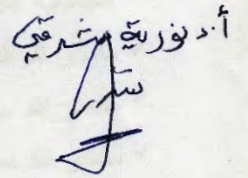 أ.د نورية شرقي